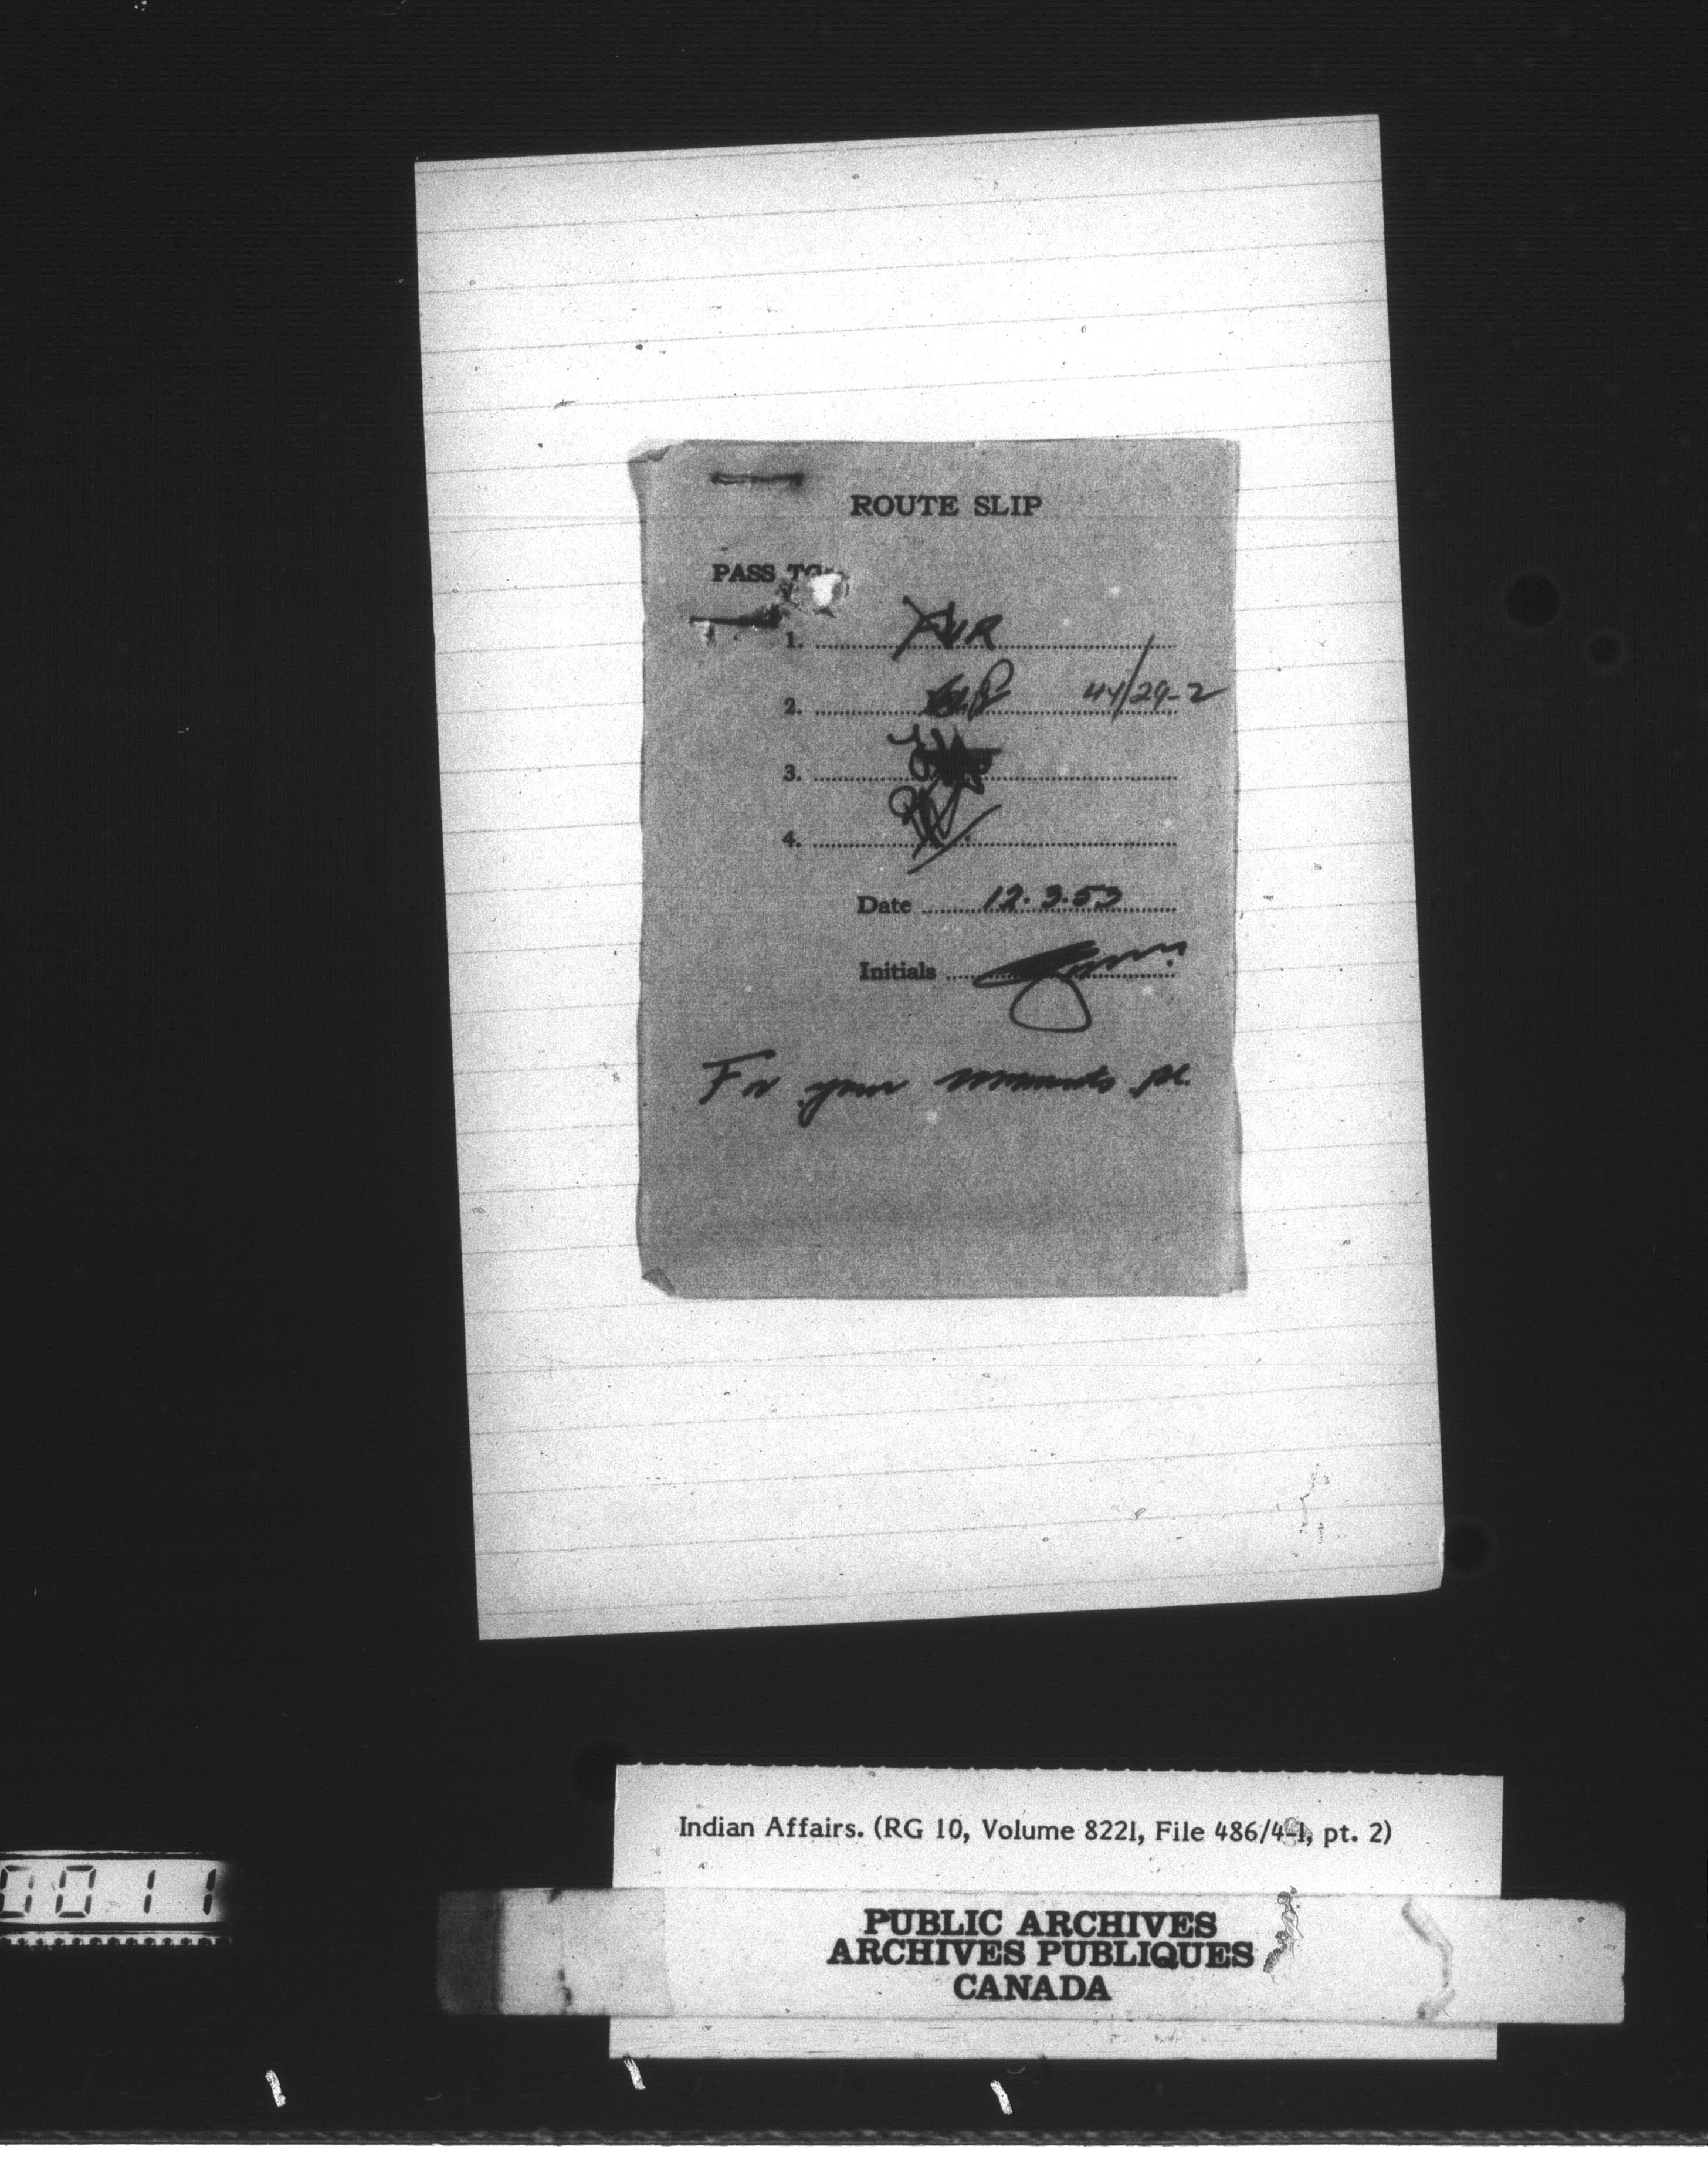 ROUTE SLIP
PASS TO
1.
2. 44/29-2
3.
4.
Date 12.3.53
Initials
For your comments pl.
Indian Affairs. (RG 10, Volume 8221, File 486/4-1, pt. 2)
0011
PUBLIC ARCHIVES
ARCHIVES PUBLIQUES
CANADA